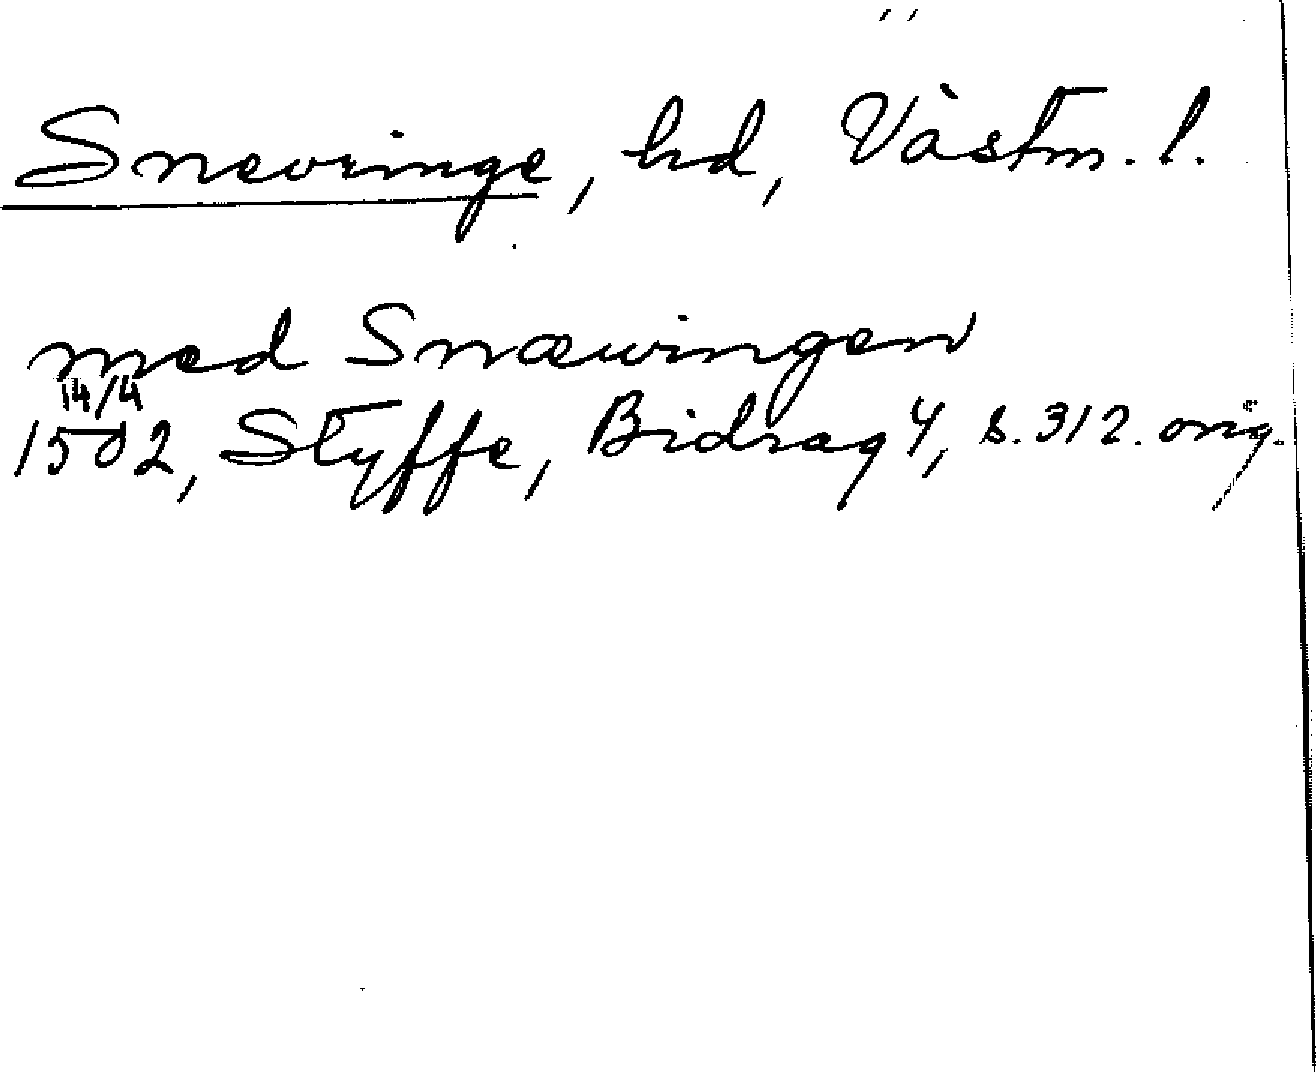 Snevringe, hd, Västm. l.
med Snæwingen
14/4
1502, Styffe, Bidrag 4, s. 312. orig.